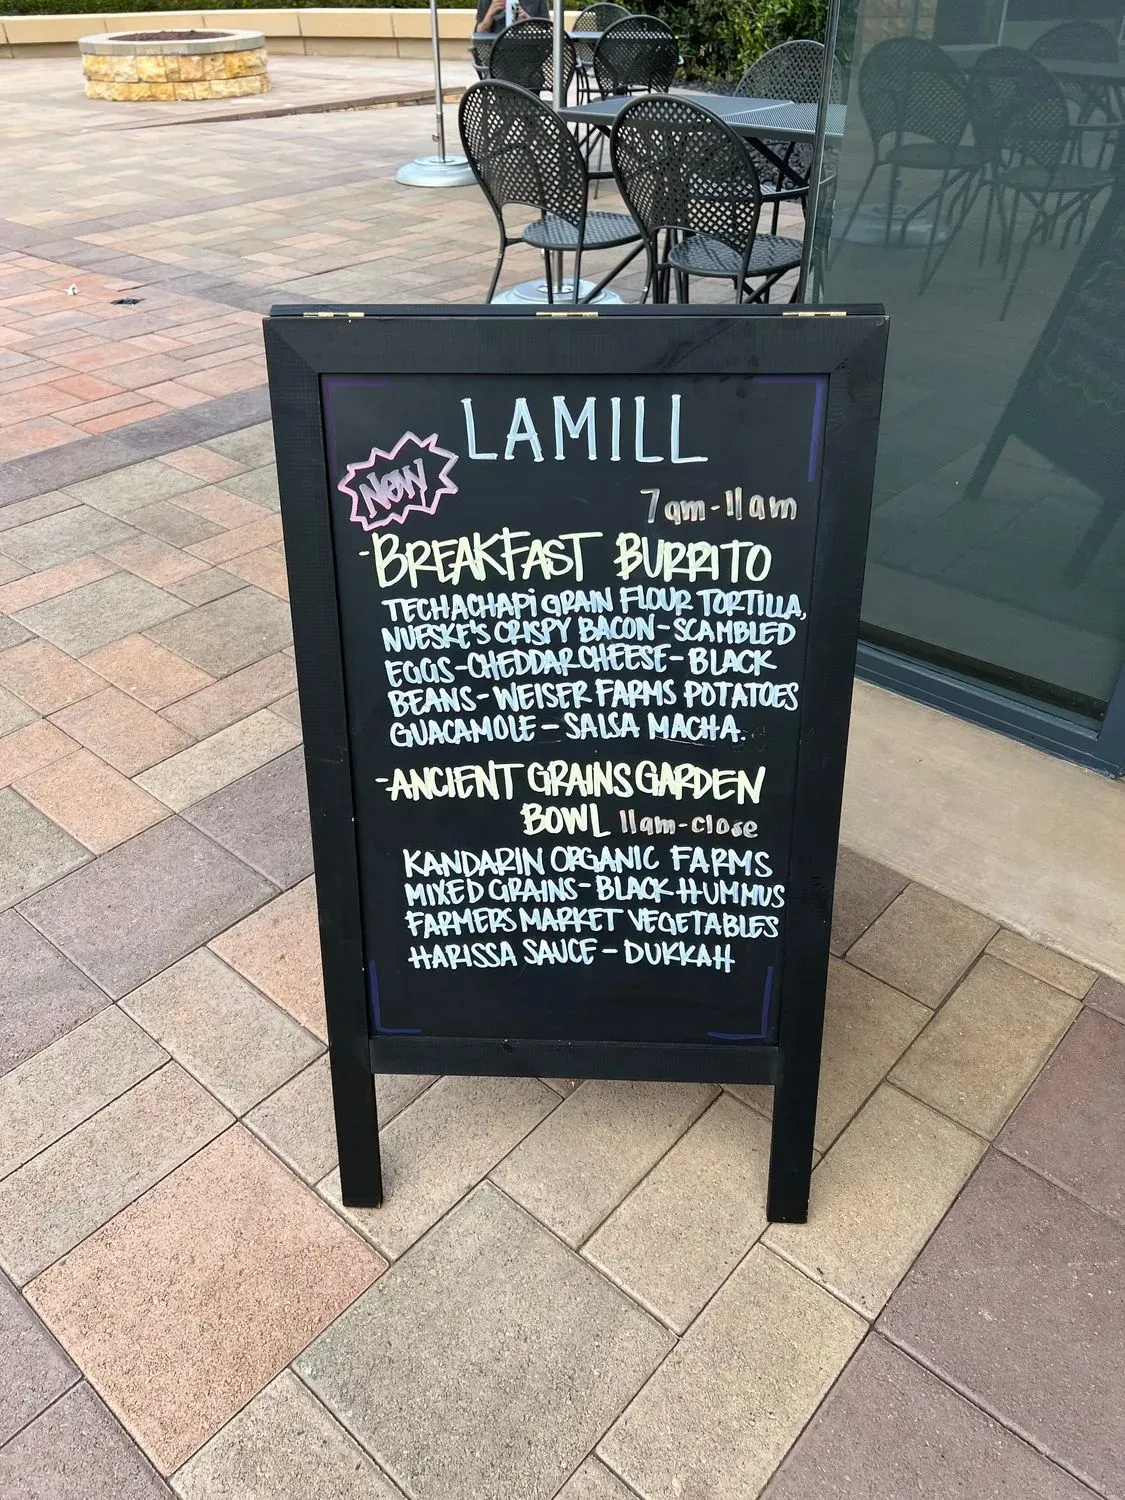 LAMILL
NEW
7am-11am
-BREAKFAST BURRITO
TECHACHAPi GRAIN FLOUR TORTILLA,
NUESKE'S CRISPY BACON-SCAMBLED
EGGS-CHEDDAR CHEESE-BLACK
BEANS-WEISER FARMS POTATOES
GUACAMOLE-SALSA MACHA.
-ANCIENT GRAINS GARDEN
BOWL 11am-close
KANDARIN ORGANIC FARMS
MIXED GRAINS-BLACK HUMMUS
FARMERS MARKET VEGETABLES
HARISSA SAUCE-DUKKAH